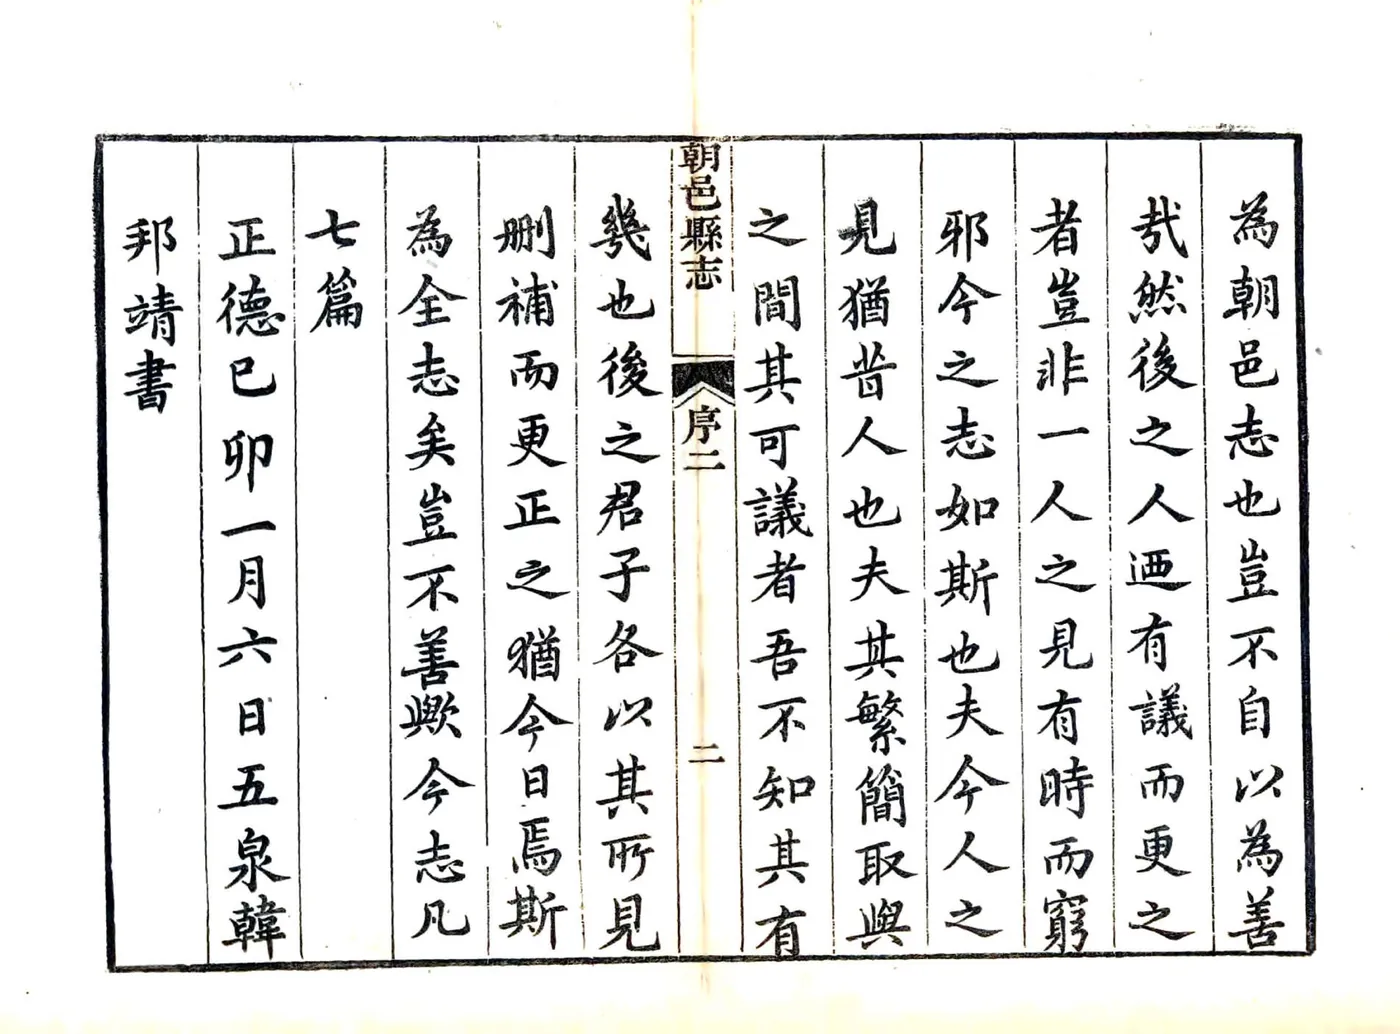 為朝邑志也豈不自以為善
哉然後之人迺有議而更之
者豈非一人之見有時而窮
邪今之志如斯也夫今人之
見猶昔人也夫其繁簡取與
之間其可議者吾不知其有
朝邑縣志
序二
二
幾也後之君子各以其所見
刪補而更正之猶今日焉斯
為全志矣豈不善歟今志凡
七篇
正德己卯一月六日五泉韓
邦靖書